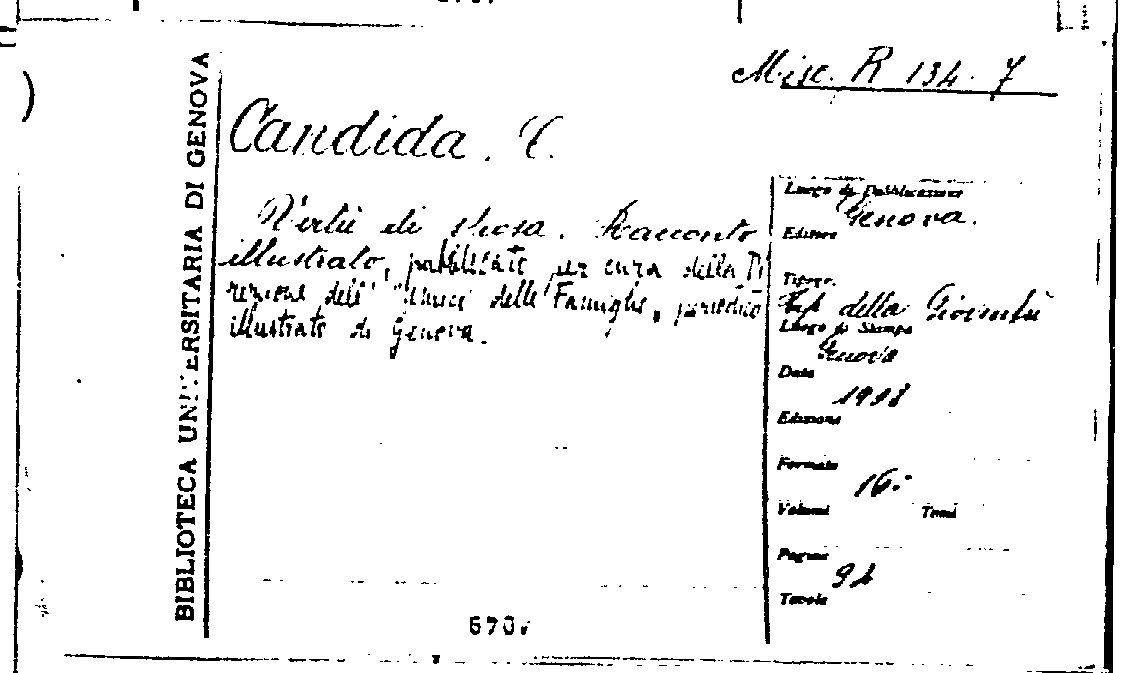 Misc. R 134. 7
BIBLIOTECA UNIVERSITARIA DI GENOVA
Candida. C.
Virtù di sposa. Racconto
illustrato, pubblicato per cura della Di
rezione dell' "Amico delle Famiglie", periodico
illustrato di Genova.
Luogo di Pubblicazione
Genova.
Editore
Tipogr.
Tip. della Gioventù
Luogo di Stampa
Genova
Data
Edizione
Formato
16.°
Volumi Tomi
Pagine
94
Tavole